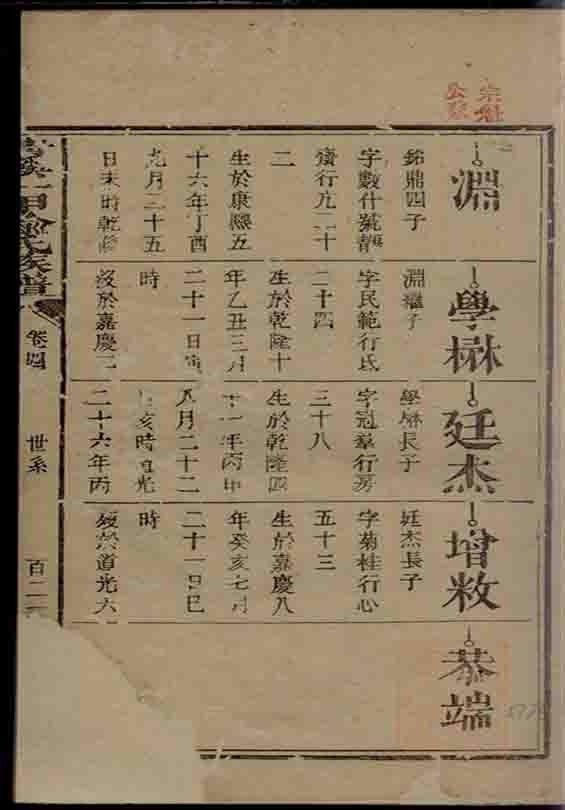 淵
銘鼎四子
字數什號靜
齋行九二十
二
生於康熙五
十六年丁酉
九月二十五
日未時乾隆
學楙
淵繼子
字民範行氏
二十四
生於乾隆十
年乙丑三月
二十一日寅
時
歿於嘉慶元
廷杰
學楙長子
字冠羣行房
三十八
生於乾隆四
十一年丙申
八月二十二
亥時道光
二十六年丙
增敉
廷杰長子
字菊桂行心
五十三
生於嘉慶八
年癸亥七月
二十一日巳
時
歿於道光六
恭端
氏族譜
卷四
世系
百二